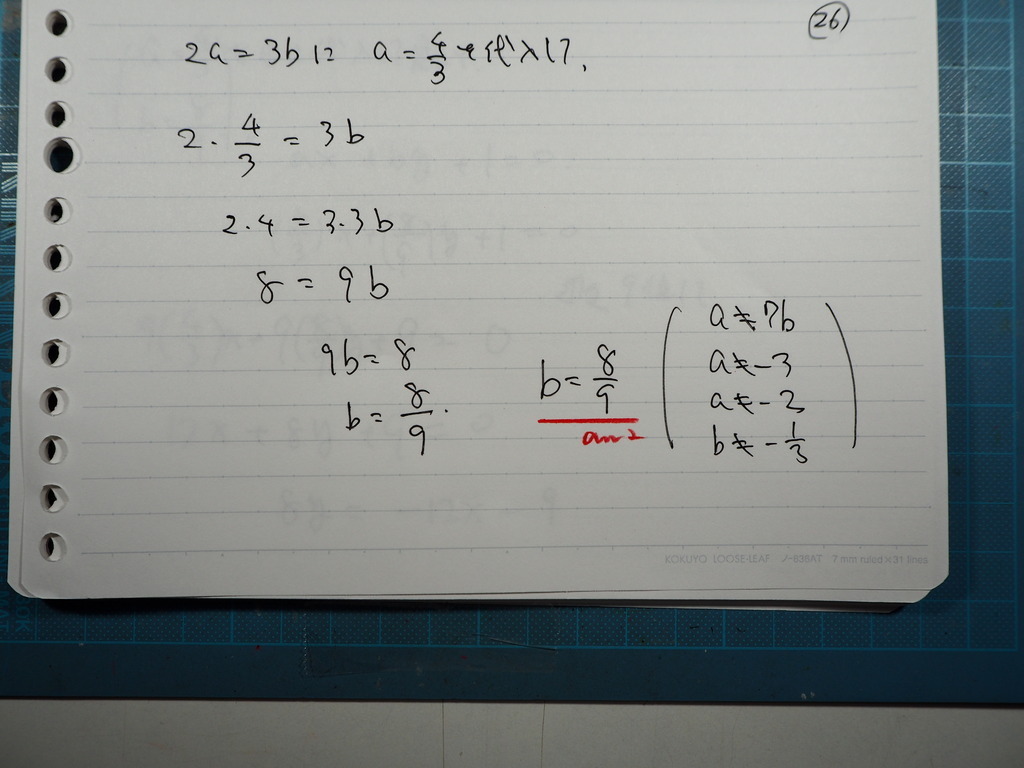 26
2a = 3b に a = 4/3 を代入して、
2・4/3 = 3b
2・4 = 3・3b
8 = 9b
9b = 8
b = 8/9.
b = 8/9
ans
a ≠ 7b
a ≠ -3
a ≠ -2
b ≠ -1/3
KOKUYO LOOSE-LEAF ノ-836AT 7 mm ruled×31 lines